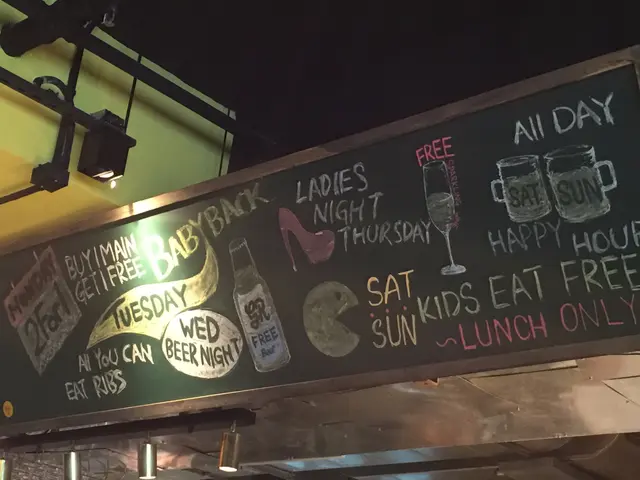 MONDAY
2 For 1
BUY 1 MAIN
GET 1 FREE
BABYBACK
TUESDAY
All YOU CAN
EAT RIBS
WED
BEER NIGHT
FREE
Beer
LADIES
NIGHT
THURSDAY
FREE
All DAY
SAT SUN
HAPPY HOUR
SAT
SUN
KIDS EAT FREE
~LUNCH ONLY